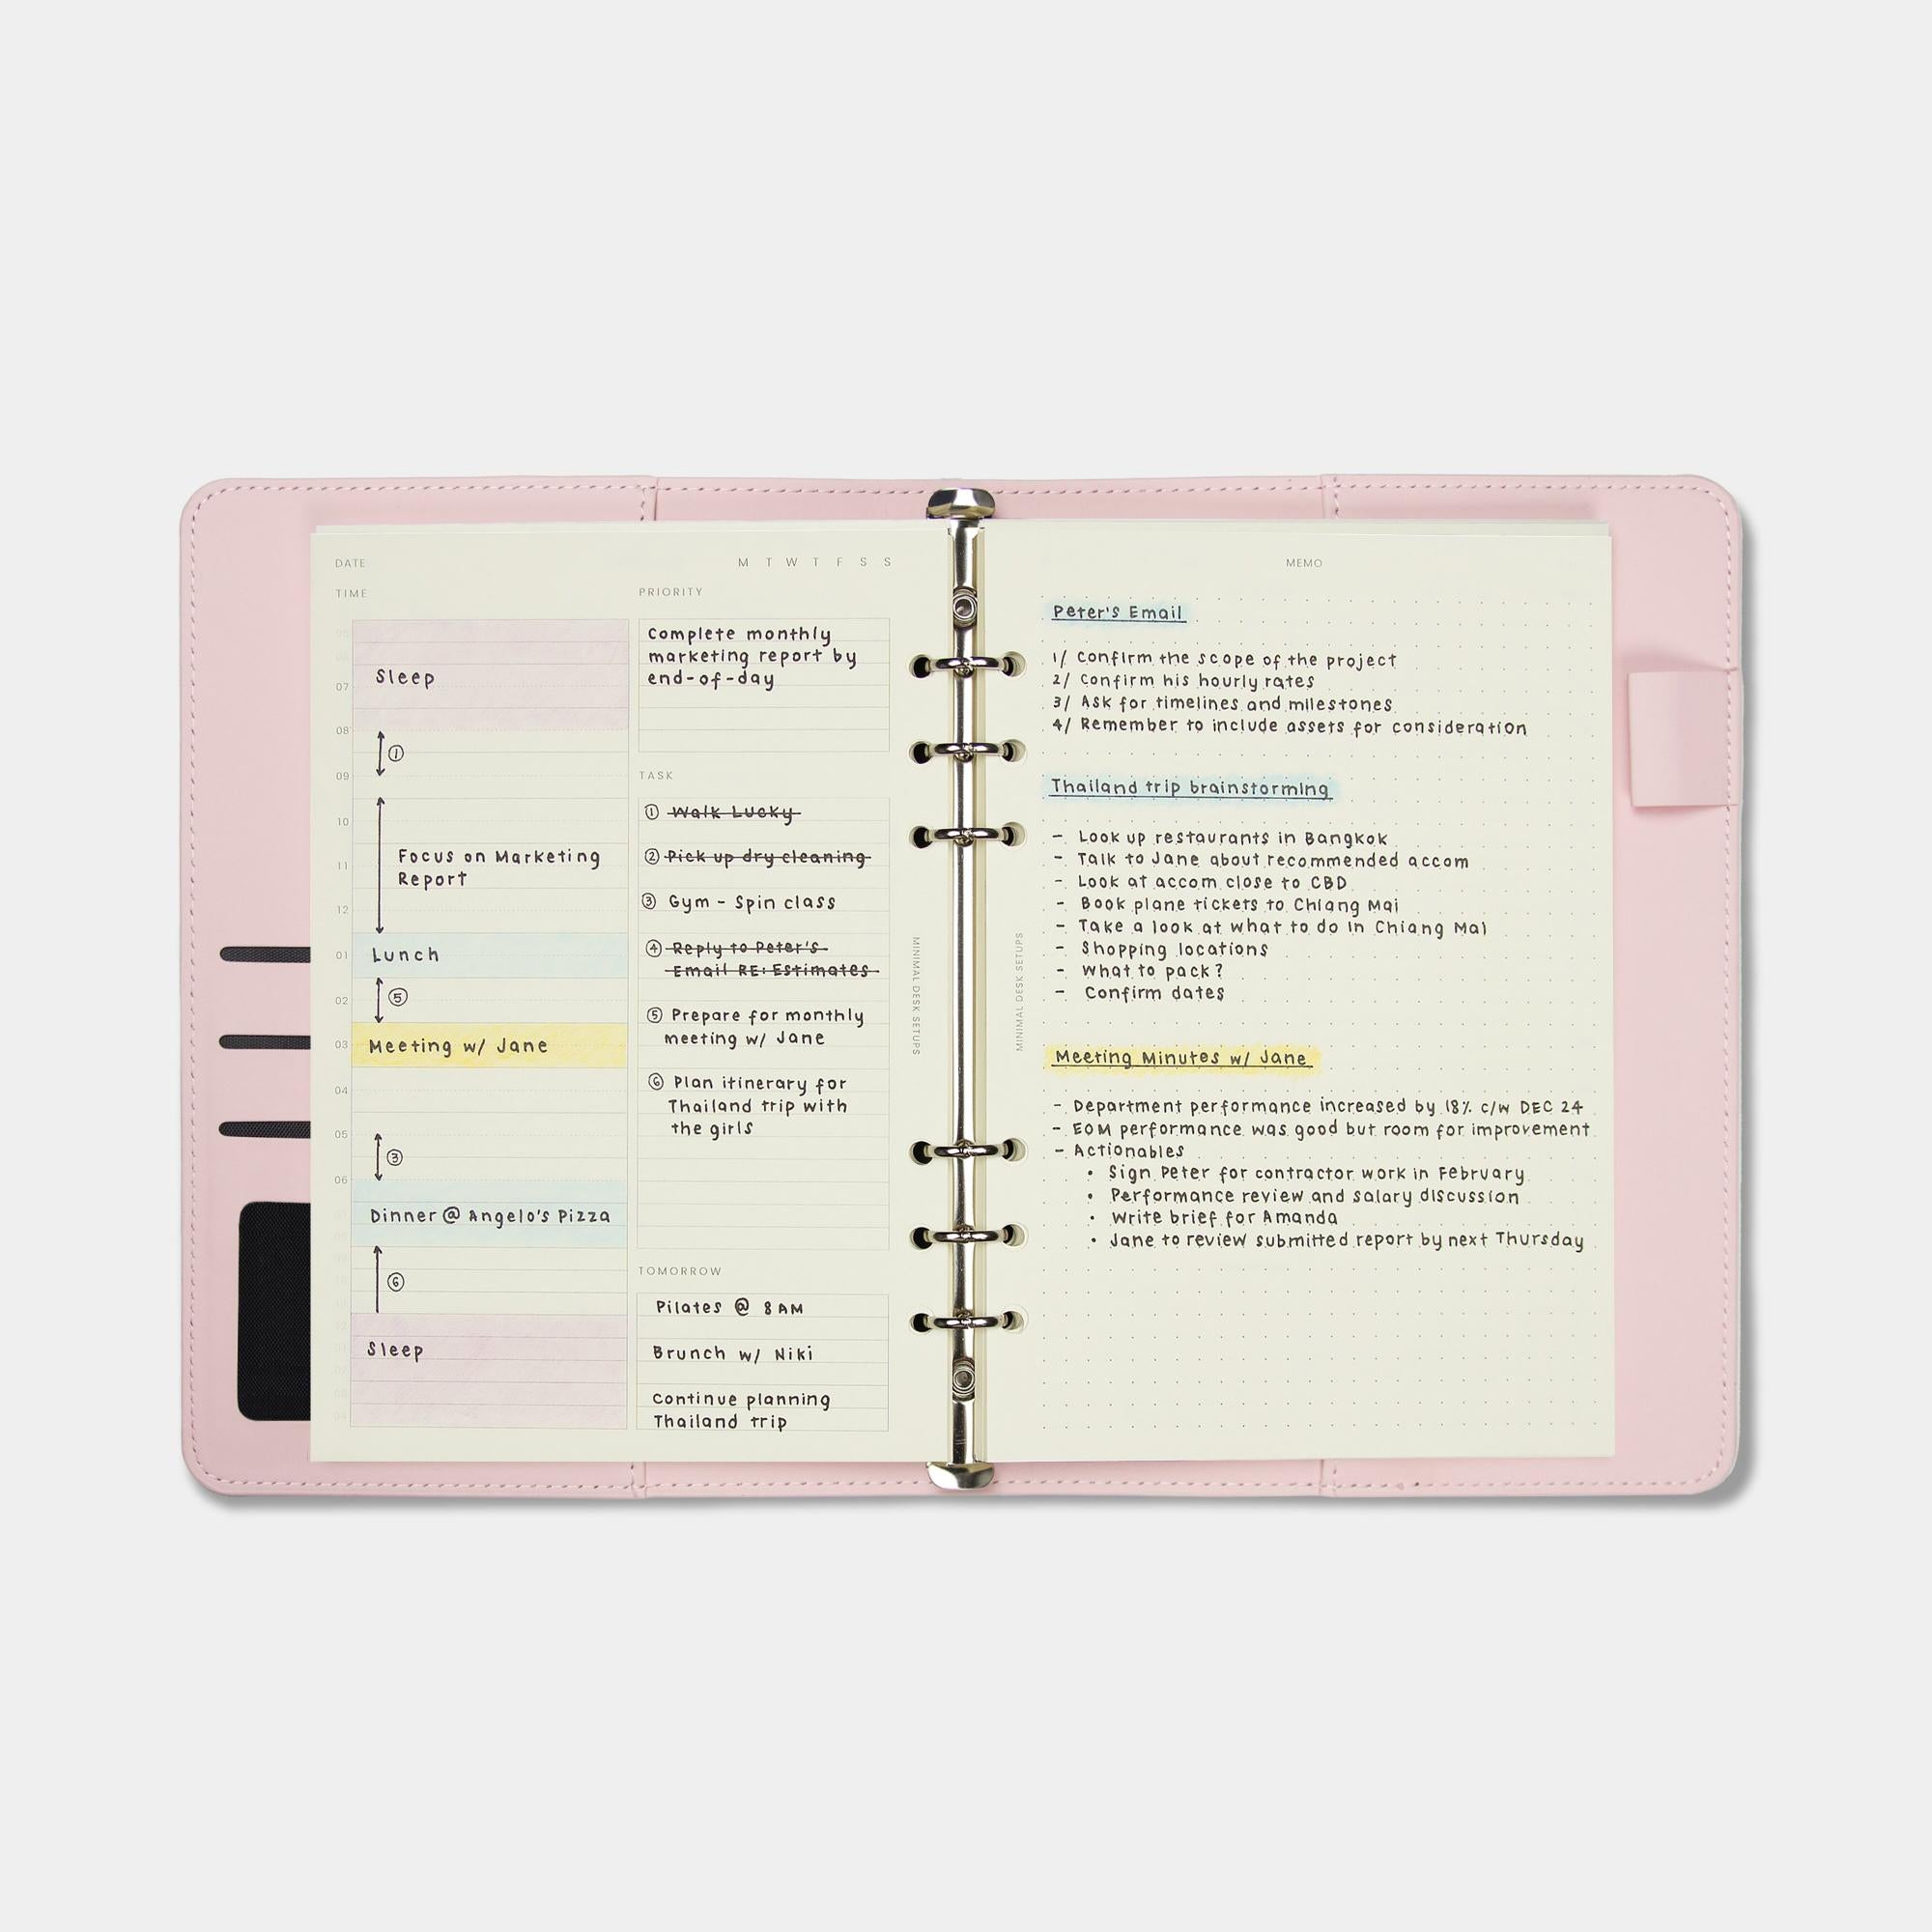 DATE
M T W T F S S
TIME
Sleep
07
08
①
09
10
11
Focus on Marketing
Report
12
01
Lunch
02
⑤
03
Meeting w/ Jane
04
05
③
06
Dinner @ Angelo's Pizza
⑥
Sleep
PRIORITY
Complete monthly
marketing report by
end-of-day
TASK
① Walk Lucky
② Pick up dry cleaning
③ Gym - Spin class
④ Reply to Peter's
Email RE: Estimates
⑤ Prepare for monthly
meeting w/ Jane
⑥ Plan itinerary for
Thailand trip with
the girls
TOMORROW
Pilates @ 8AM
Brunch w/ Niki
Continue planning
Thailand trip
MINIMAL DESK SETUPS
MINIMAL DESK SETUPS
MEMO
Peter's Email
1/ Confirm the scope of the project
2/ Confirm his hourly rates
3/ Ask for timelines and milestones
4/ Remember to include assets for consideration
Thailand trip brainstorming
- Look up restaurants in Bangkok
- Talk to Jane about recommended accom
- Look at accom close to CBD
- Book plane tickets to Chiang Mai
- Take a look at what to do in Chiang Mai
- Shopping locations
- What to pack?
- Confirm dates
Meeting Minutes w/ Jane
- Department performance increased by 18% c/w DEC 24
- EOM performance was good but room for improvement
- Actionables
• Sign Peter for contractor work in February
• Performance review and salary discussion
• Write brief for Amanda
• Jane to review submitted report by next Thursday